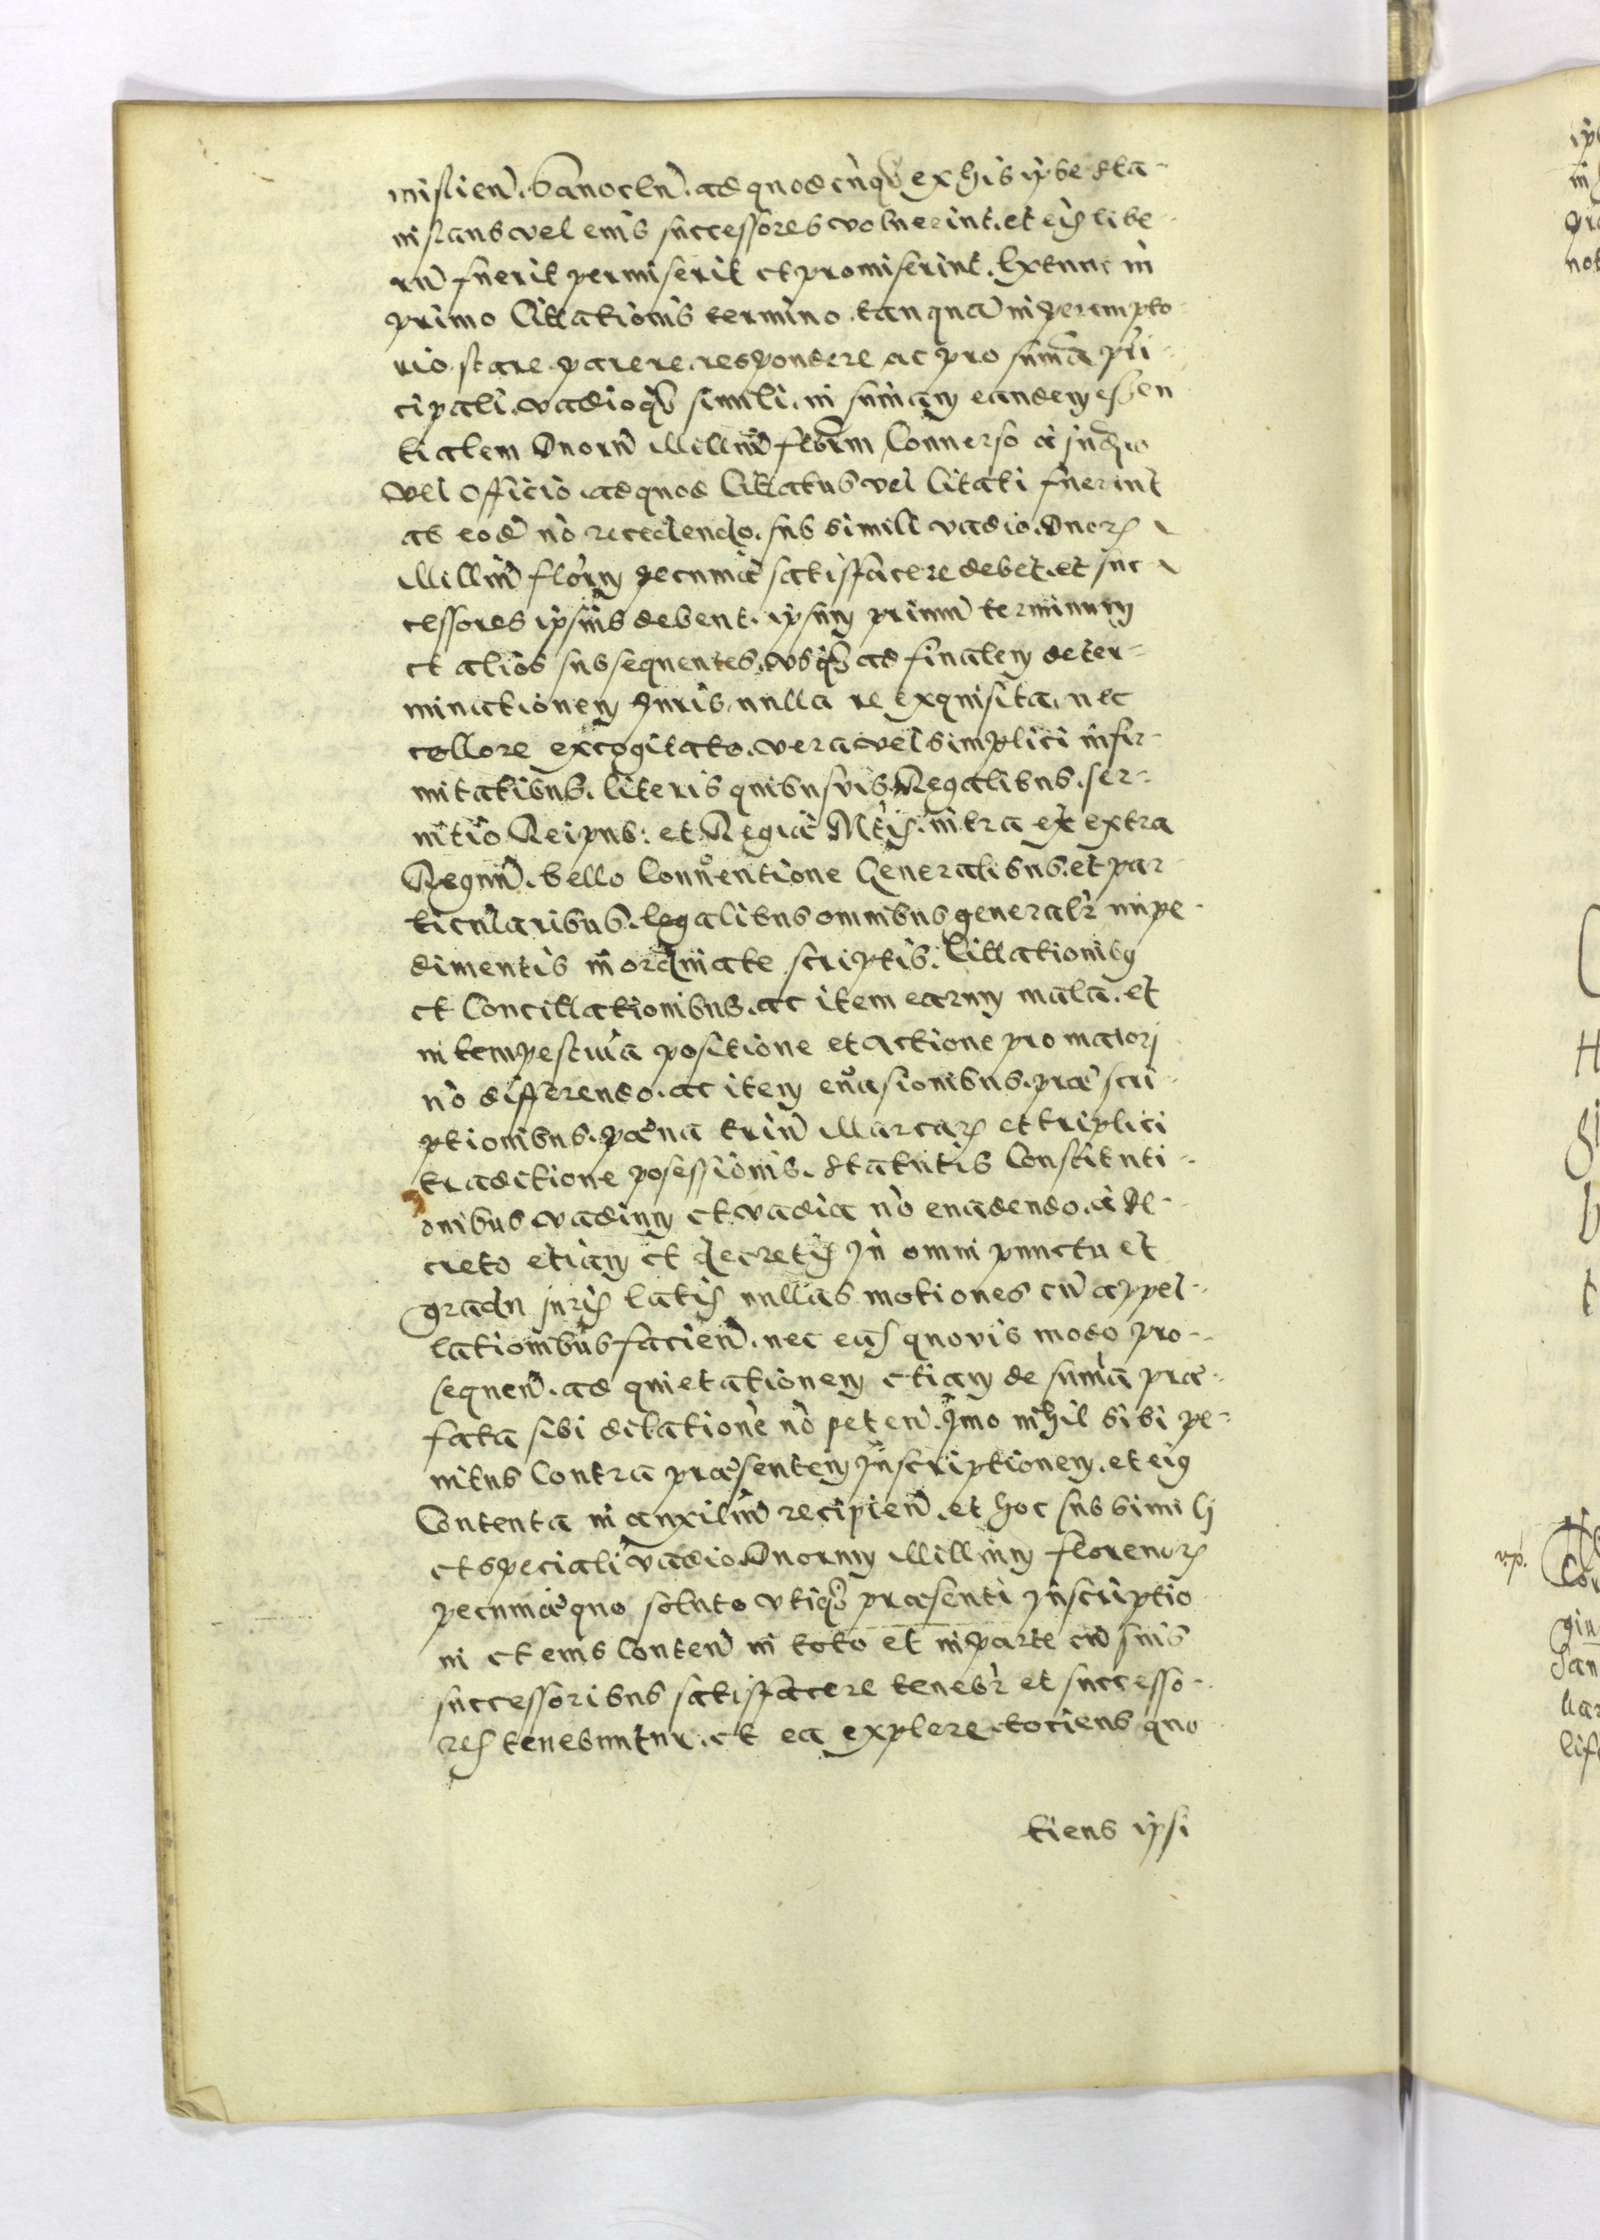 miscien̄. Sanocen̄. ad quodcunq; ex his ipse Sta-
nislaus vel eius successores voluerint. et eis libe-
rū fuerit permiserit et promiserint. Extunc in
primo Citationis termino tanquā in perempto-
rio. stare. parere. respondere ac pro sumā pri-
cipali. vadioq; simili. in sumam eandem essen
tialem Duorū Milliū florm̄ Converso à judicio
vel officio. ad quod Citatus vel Citati fuerint
ab eodē nō recedendo. sub simili vadio. Duorum
Milliū florm̄ pecuniæ satisfacere debet. et suc-
cessores ipsius debent. ipsum primū terminum
et alios subsequentes. vsq; ad finalem deter-
minationem Juris, nulla re exquisita, nec
collore excogitato. vera vel simplici infir-
mitatibus. literis quibusvis Regalibus. ser-
vitio Reipub: et Regiæ Mtis. intra et extra
Regnū. bello Conventione Generalibus. et par
ticularibus. legalibus omnibus generalr̄ impe-
dimentis inordinate scriptis. Citationibus
et Concitationibus. ac item earum mala. et
intempestiva positione et actione pro maiori
nō differendo. ac item evasionibus. præscri-
ptionibus. pæna triū Marcarum et triplici
traditione posessionis. Statutis Constituti-
onibus vadium et vadia nō evadendo. à de-
creto etiam et decretis in omni punctu et
gradu juris latis nullas motiones cū appel-
lationibus facien̄. nec eas quovis modo pro-
sequen̄. ad quietationem etiam de sumā præ-
fata sibi dilationē nō peten̄. Imo nihil sibi pe-
nitus Contra præsentem Inscriptionem. et eius
Contenta in auxiliū recipien̄. et hoc sub simili
et speciali vadio Duorum Millium florenorum
pecuniæ quo soluto vtiq; præsenti Inscriptio
ni et eius Conten̄ in toto et in parte cū suis
successoribus satisfacere tenebr̄ et successo-
res tenebuntur. et ea explere. tociens quo
tiens ipsi